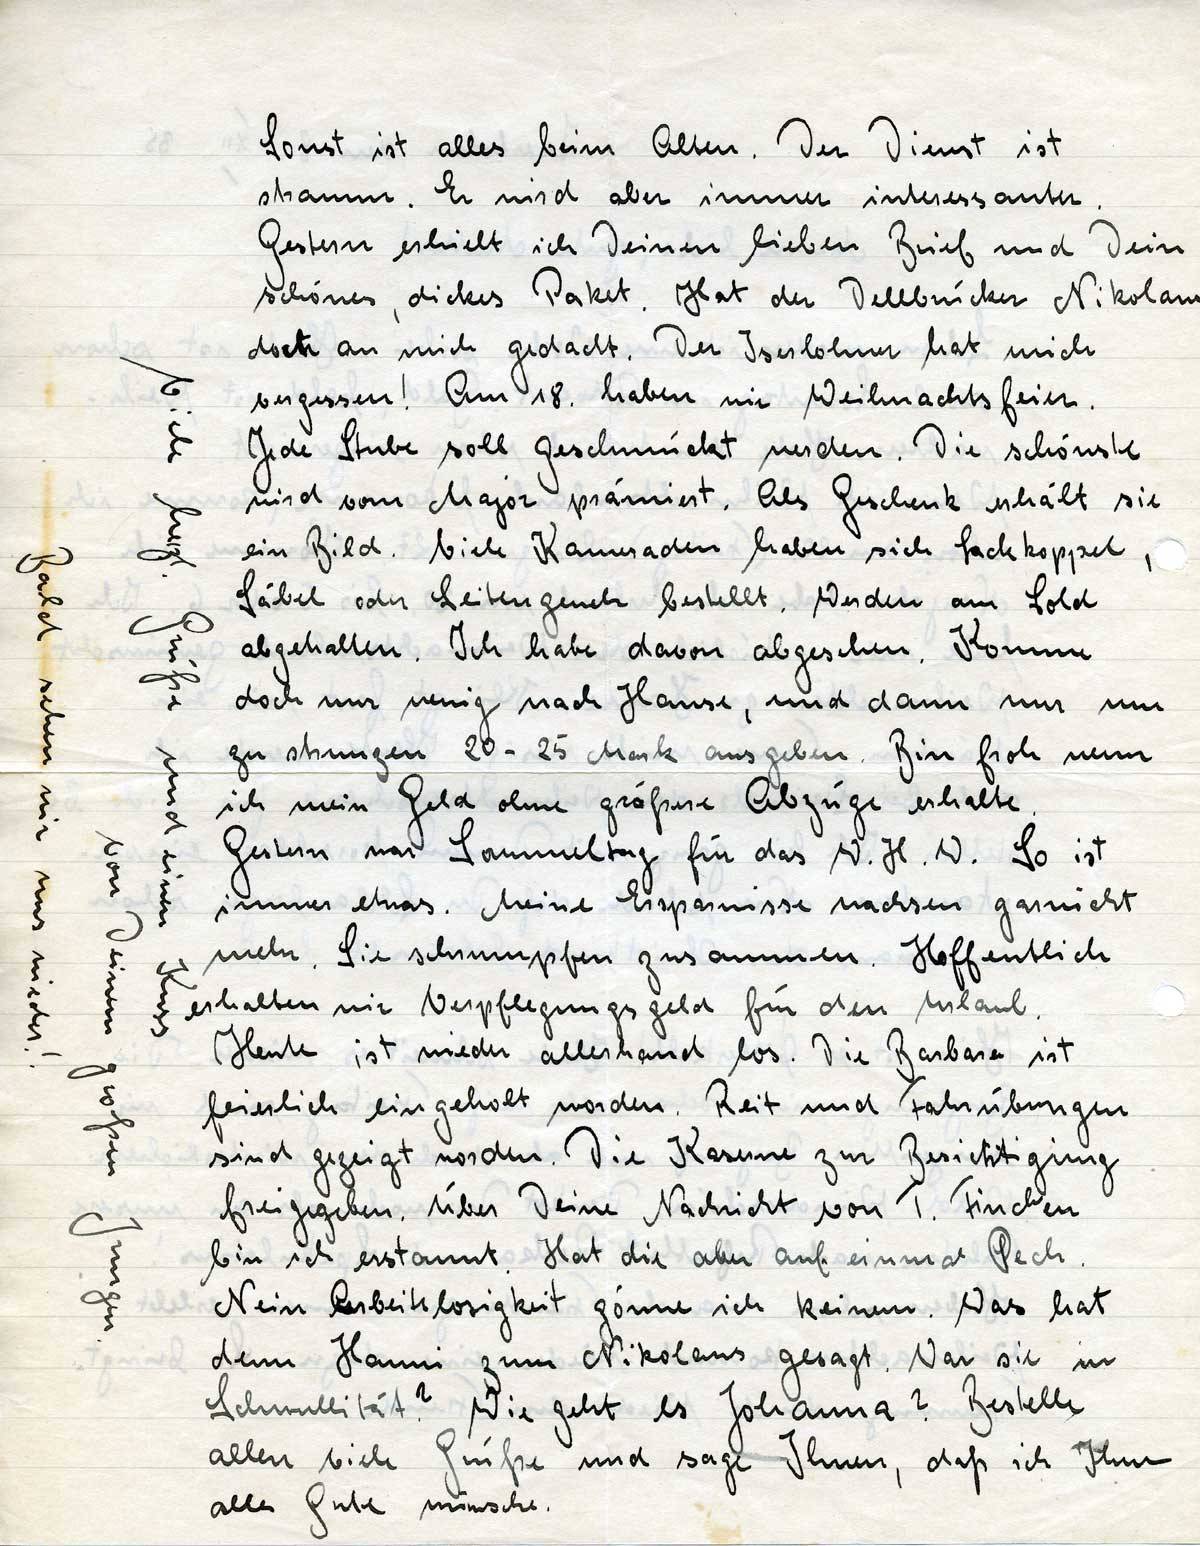 Sonst ist alles beim Alten. Der Dienst ist
stramm. Er wird aber immer interessanter.
Gestern erhielt ich Deinen lieben Brief und Dein
schönes, dickes Paket. Hat der Dellbrücker Nikolaus
doch an mich gedacht. Der Iserlohner hat mich
vergessen! Am 18. haben wir Weihnachtsfeier.
Jede Stube soll geschmückt werden. Die schönste
wird vom Major prämiert. Als Geschenk erhält sie
ein Bild. Viele Kameraden haben sich Lackkoppel,
Säbel oder Seitengeweh bestellt. Werden am Sold
abgehalten. Ich habe davon abgesehen. Komme
doch nur wenig nach Hause, und dann nur um
zu strunzen 20-25 Mark ausgeben. Bin froh wenn
ich mein Geld ohne größere Abzüge erhalte.
Gestern war Sammeltag für das W.H.W. So ist
immer etwas. Meine Ersparnisse wachsen garnicht
mehr. Sie schrumpfen zusammen. Hoffentlich
erhalten wir Verpflegungsgeld für den Urlaub.
Heute ist wieder allerhand los. Die Barbara ist
feierlich eingeholt worden. Reit und Fahrübungen
sind gezeigt worden. Die Kaserne zur Besichtigung
freigegeben. Über Deine Nachricht von T. Finchen
bin ich erstaunt. Hat die aber auf einmal Pech.
Nein Arbeitslosigkeit gönne ich keinem. Was hat
denn Hanni zum Nikolaus gesagt. War sie in
Schwullität? Wie geht es Johanna? Bestelle
allen viele Grüße und sage Ihnen, daß ich Ihnen
alles Gute wünsche.
Viele herzl. Grüße und einen Kuss
von Deinem großen Jungen.
Bald sehen wir uns wieder!